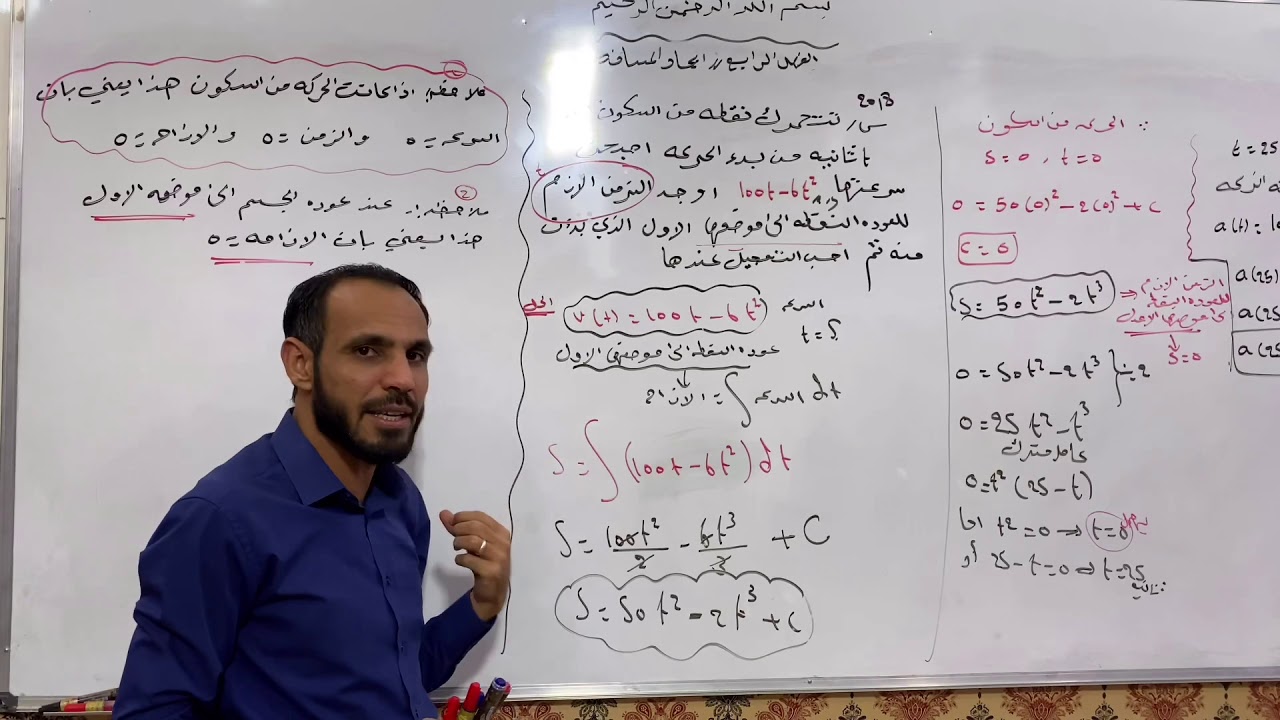 بسم الله الرحمن الرحيم
الفصل الرابع // ايجاد المسافه
ملاحظه: اذا كانت الحركه من السكون هذا يعني بان
السرعه = 0 والزمن = 0 والازاحه = 0
② ملاحظه: عند عوده الجسم الى موضعه الاول
هذا يعني بان الازاحه = 0
2013
س/ تتحرك نقطه من السكون
t ثانيه من بدء الحركه اصبحت
سرعتها 100t-6t² اوجد الزمن الازم
للعوده النقطه الى موضعها الاول الذي بدات
منه ثم احسب التعجيل عندها
الحل
السرعه V(t) = 100t - 6t²
t = ?
عوده النقطه الى موضعها الاول
الازاح = ∫ السرعه dt
S = ∫ (100t - 6t²) dt
S = 100t²/2 - 6t³/3 + C
S = 50t² - 2t³ + C
∴ الحركه من السكون
S = 0 , t = 0
0 = 50(0)² - 2(0)³ + C
C = 0
S = 50t² - 2t³ ⇒ الزمن الازم
للعوده النقطه
الى موضعها الاول
↓
S = 0
0 = 50t² - 2t³ } ÷ 2
0 = 25t² - t³
عامل مشترك
0 = t² (25 - t)
اما t² = 0 ⇒ t = 0 يهمل
أو 25 - t = 0 ⇒ t = 25 ثانيه
t = 25
a(t) = 1
a(25)
a(25
a(25